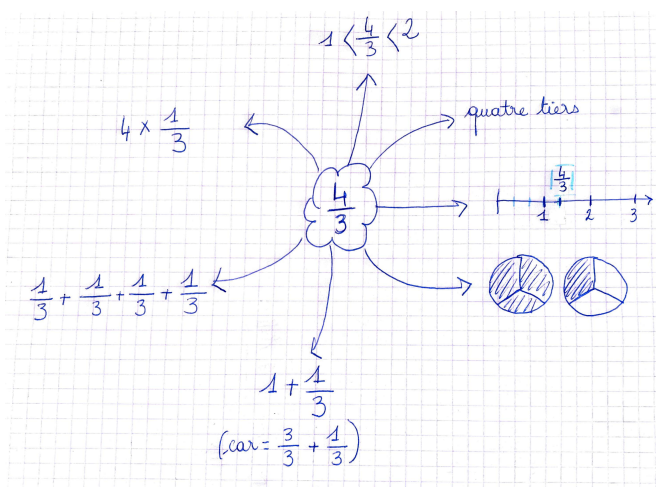 1 < 4/3 < 2
4 × 1/3
quatre tiers
4/3
4/3
1 2 3
1/3 + 1/3 + 1/3 + 1/3
1 + 1/3
(car = 3/3 + 1/3)